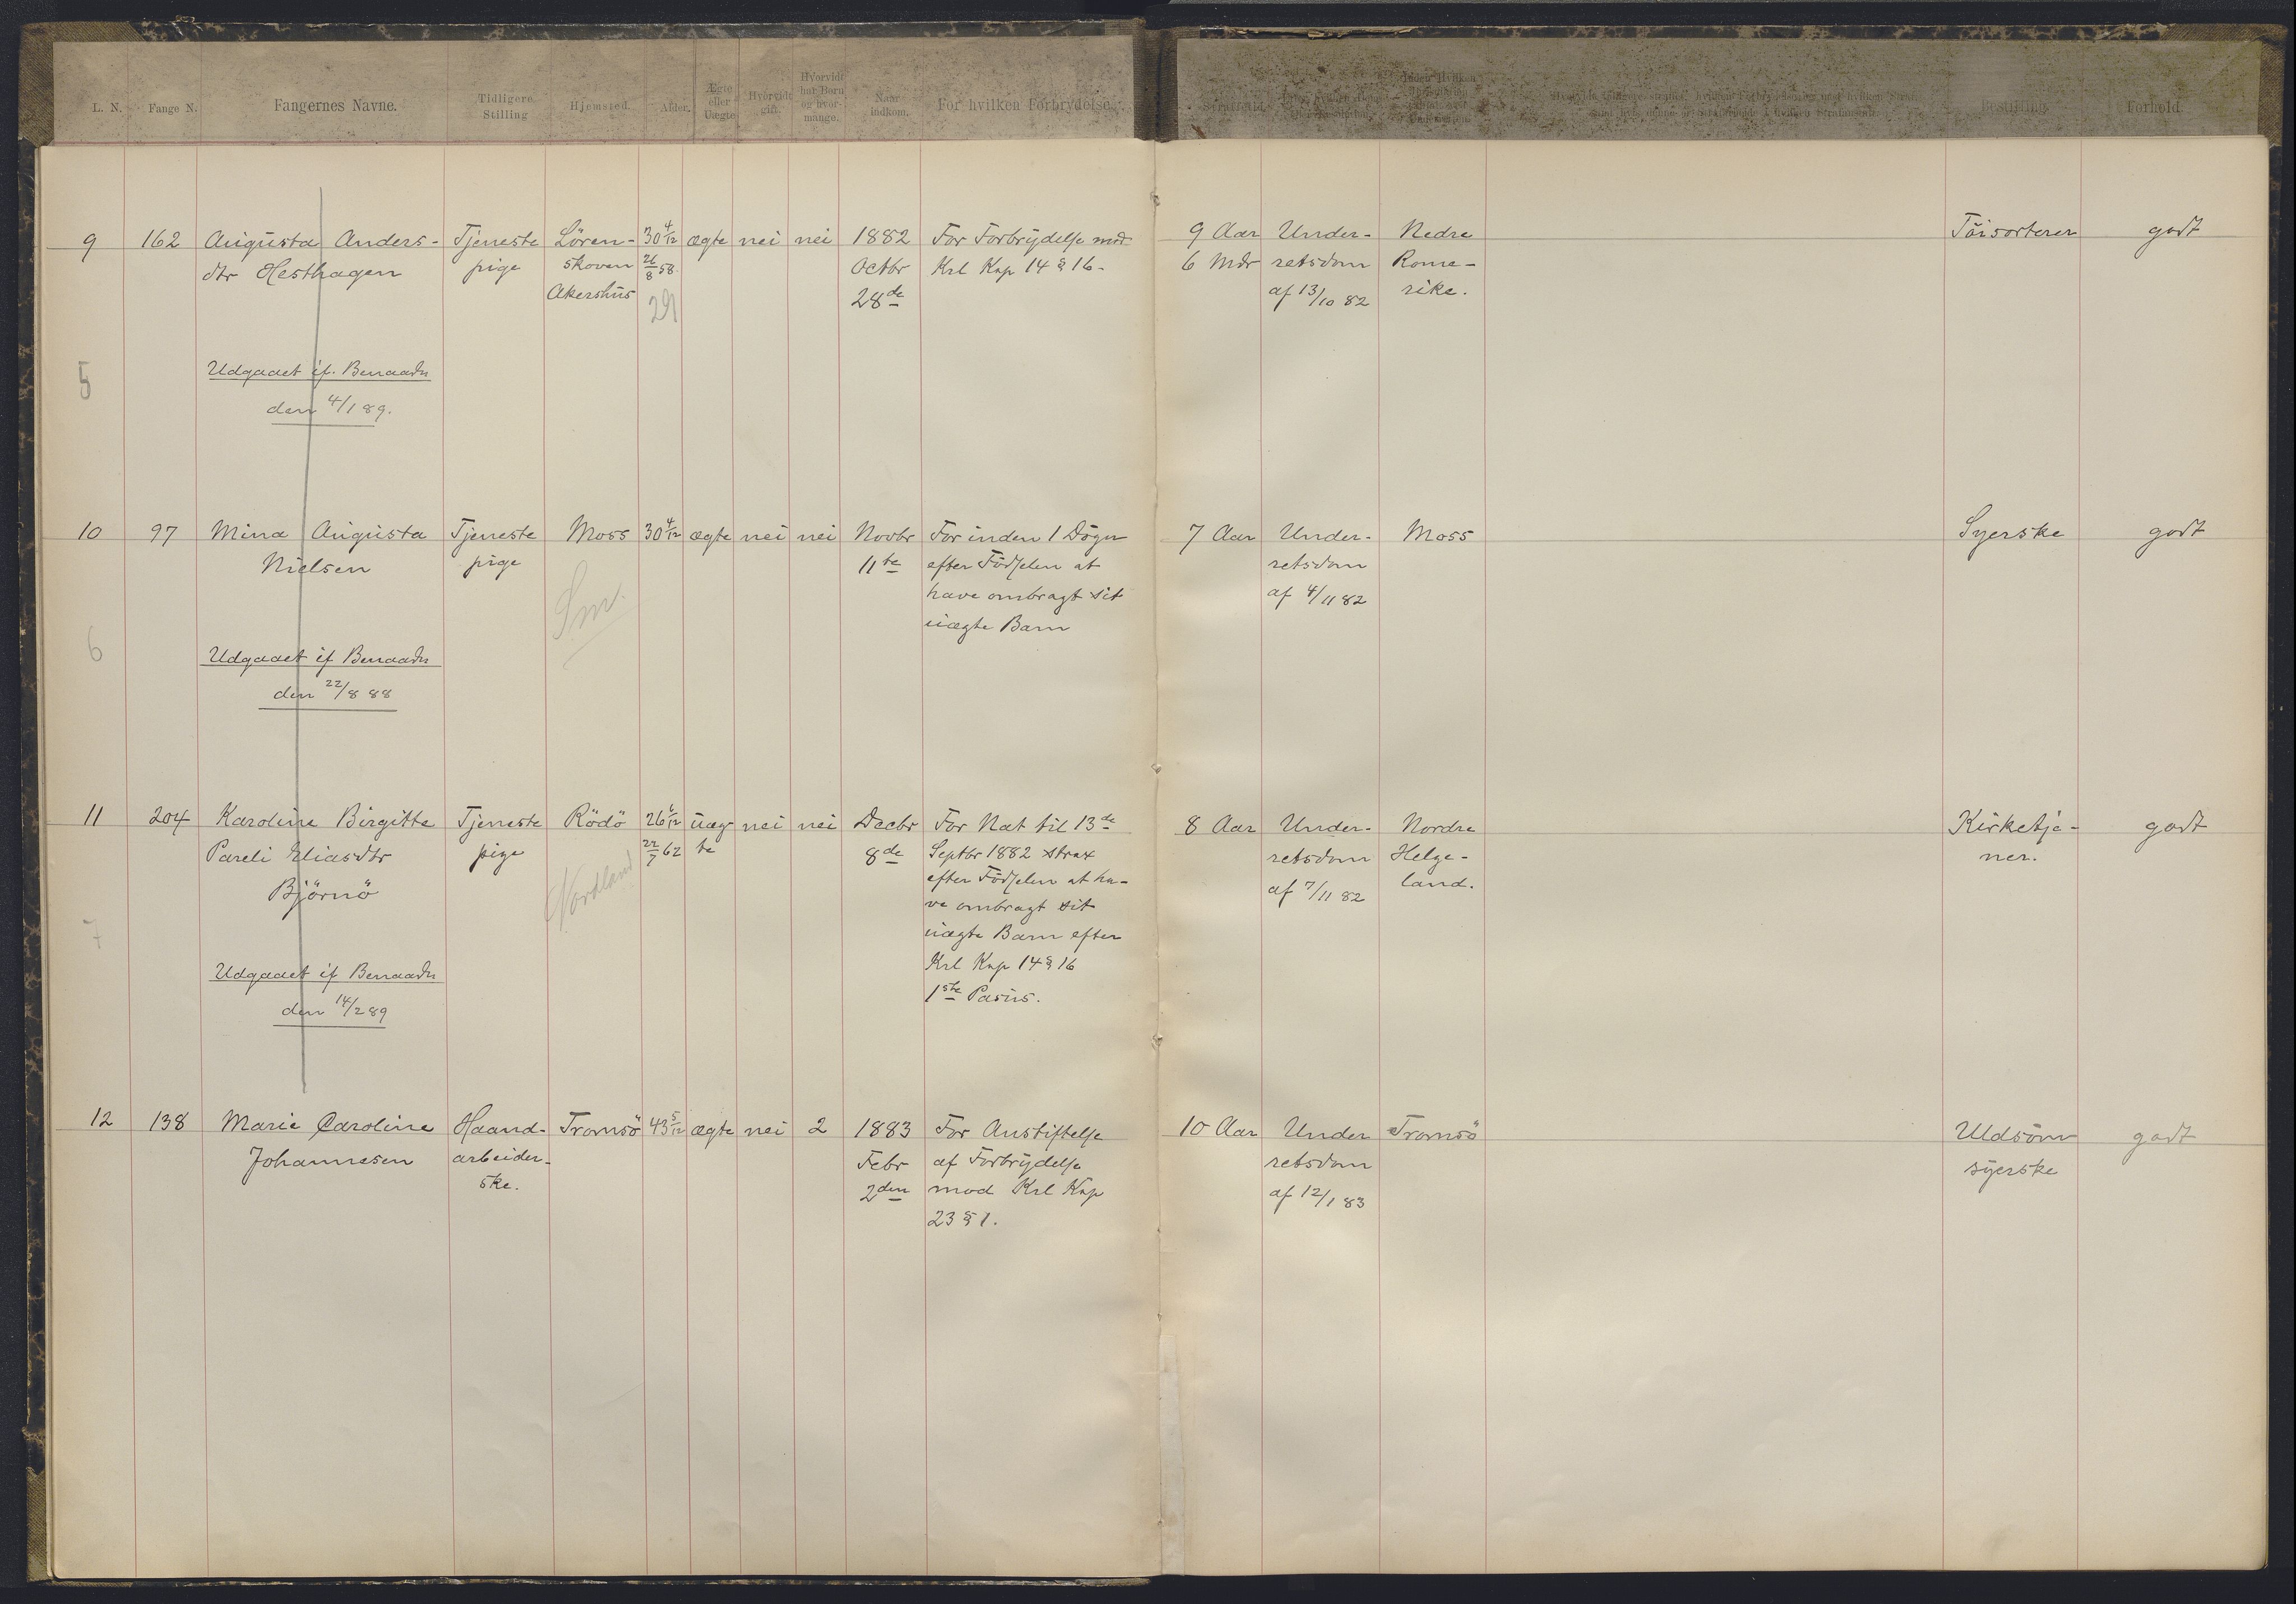 L. N. Fange N. Fangernes Navne. Tidligere Stilling Hjemsted. Alder. Ægte eller Uægte Hvorvidt gift. Hvorvidt har Børn og hvor- mange. Naar indkom. For hvilken Forbrydelse. Bestilling. Forhold.
9 162 Augusta Anders- Tjeneste Lören- 30 4/12 ægte nei nei 1882 For Forbrydelse mod 9 Aar Under- Nedre Töisorterer godt
dtr Hesthagen pige skoven 26/8 58. Octbr Krl Kap 14 § 16- 6 Mdr retsdom Rome-
Akershus 29 28de af 13/10 82 rike.
5 Udgaaet if. Benaadn
den 4/1 89.
10 97 Mina Augusta Tjeneste Moss 30 4/12 ægte nei nei Novbr For inden 1 Dögn 7 Aar Under- Moss Syerske godt
Nielsen pige 11te efter Födselen at retsdom
Sm. have ombragt sit af 4/11 82
uægte Barn
6 Udgaaet if Benaadn
den 22/8 88
11 204 Karoline Birgitte Tjeneste Rödö 26 6/12 uæg nei nei Decbr For Nat til 13de 8 Aar Under- Nordre Kirketje- godt
Pareli Eliasdtr pige 22/7 62 te 8de Septbr 1882 strax retsdom Helge- ner.
Björnö Nordland efter Födselen at ha- af 7/11 82 land.
ve ombragt sit
7 uægte Barn efter
Udgaaet if Benaadn Krl Kap 14 § 16
den 14/2 89 1ste Pasus.
12 138 Marie Caroline Haand- Tromsö 43 5/12 ægte nei 2 1883 For Anstiftelse 10 Aar Under Tromsö Uldsöm godt
Johannesen arbeider- Febr af Forbrydelse retsdom syerske
ske. 2den mod Krl Kap af 12/1 83
23 § 1.